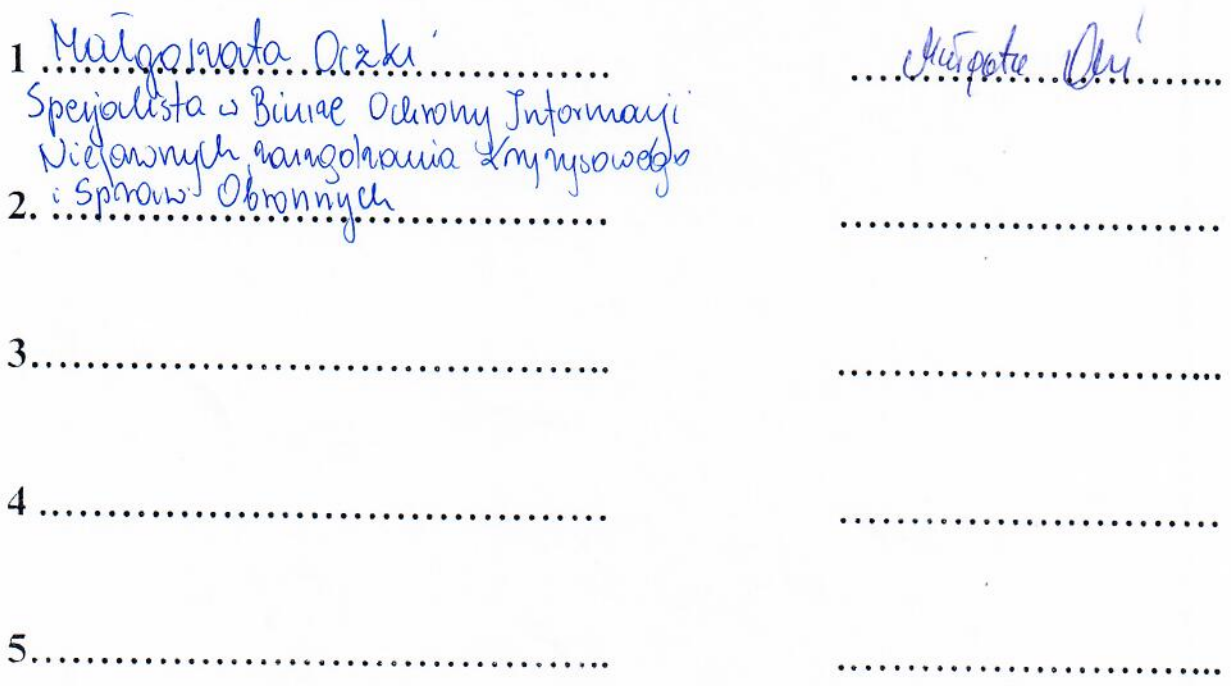 1 Małgorzata Oczki
Specjalista w Biurze Ochrony Informacji
Niejawnych, zarządzania kryzysowego
2. i Spraw Obronnych
3.
4
5.